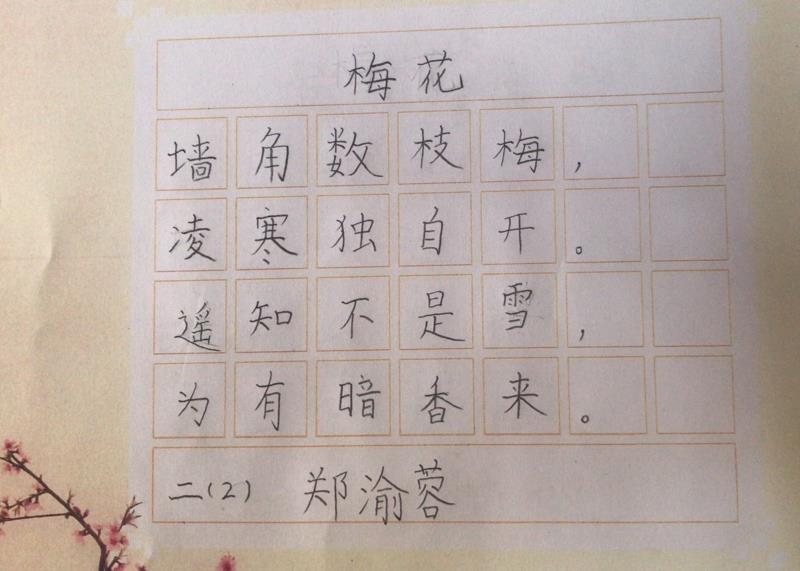 梅花
墙角数枝梅，
凌寒独自开。
遥知不是雪，
为有暗香来。
二(2) 郑渝蓉